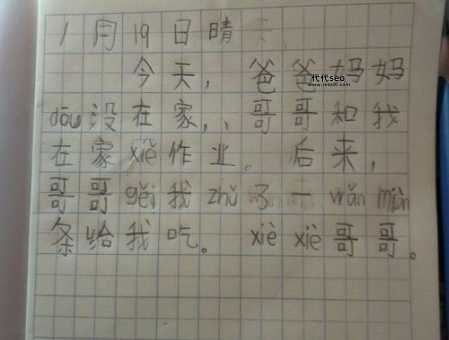 1月19日晴
今天，爸爸妈妈
dōu没在家，、哥哥和我
在家xiě作业。后来，
哥哥gěi我zhǔ了一wǎn miàn
条给我吃。xiè xiè哥哥。
代代seo